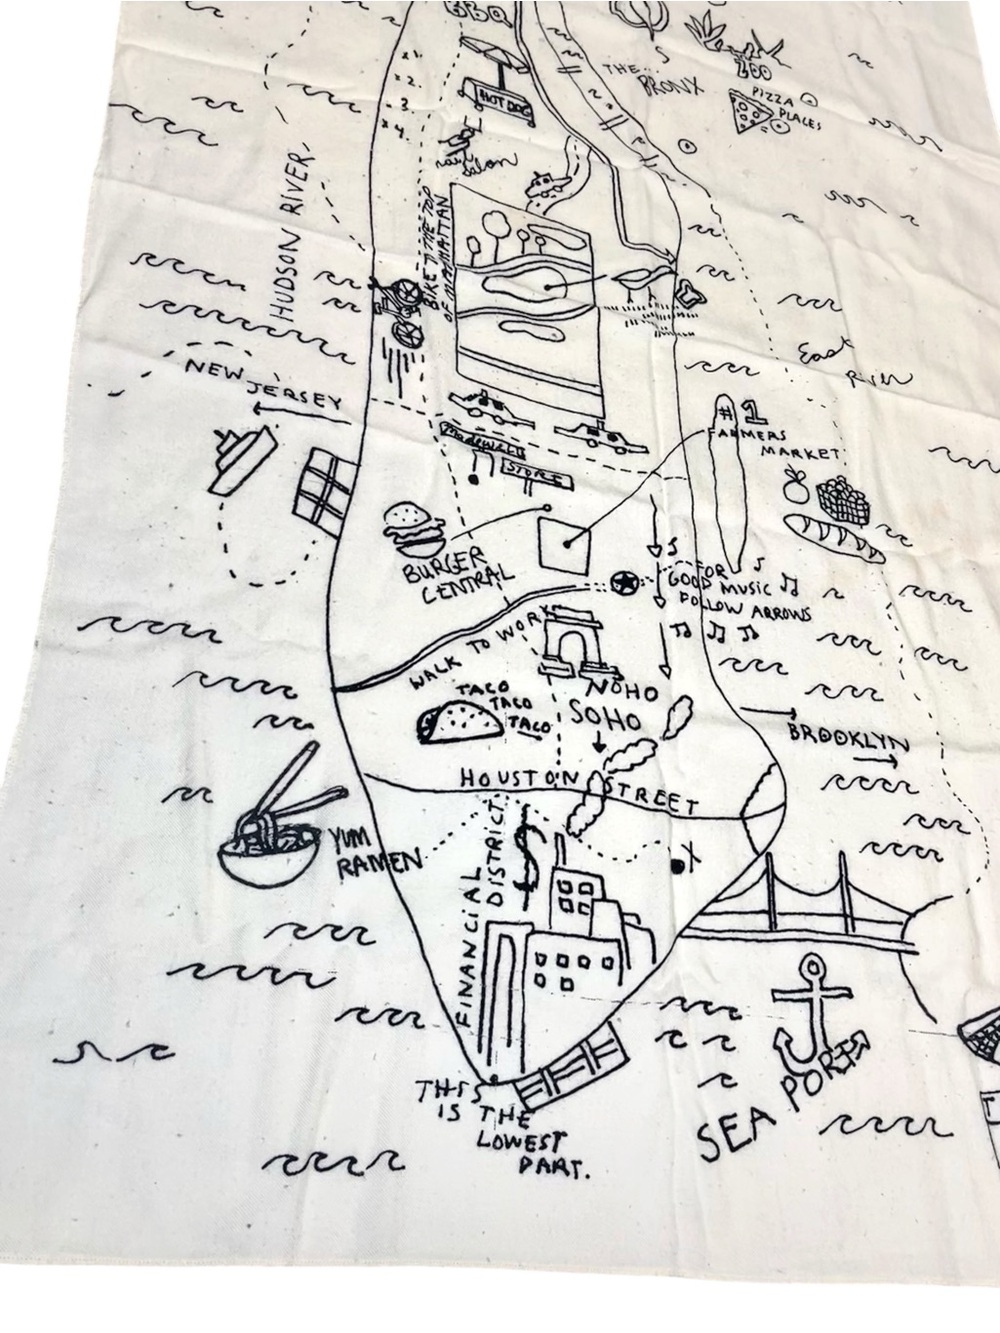 BBQ
ZOO
THE
BRONX
PIZZA
PLACES
HOT DOG
x 1.
x 2.
x 3
x 4.
nail
Salon
HUDSON RIVER
BIKE TO THE TOP
OF MANHATTAN
East
River
NEW JERSEY
#1
FARMERS
MARKET
Madewell
STORE
BURGER
CENTRAL
FOR
GOOD MUSIC
FOLLOW ARROWS
WALK TO WORK
NOHO
SOHO
TACO
TACO
TACO
BROOKLYN
HOUSTON STREET
YUM
RAMEN
FINANCIAL
DISTRICT
$
SEA PORT
THIS
IS THE
LOWEST
PART.